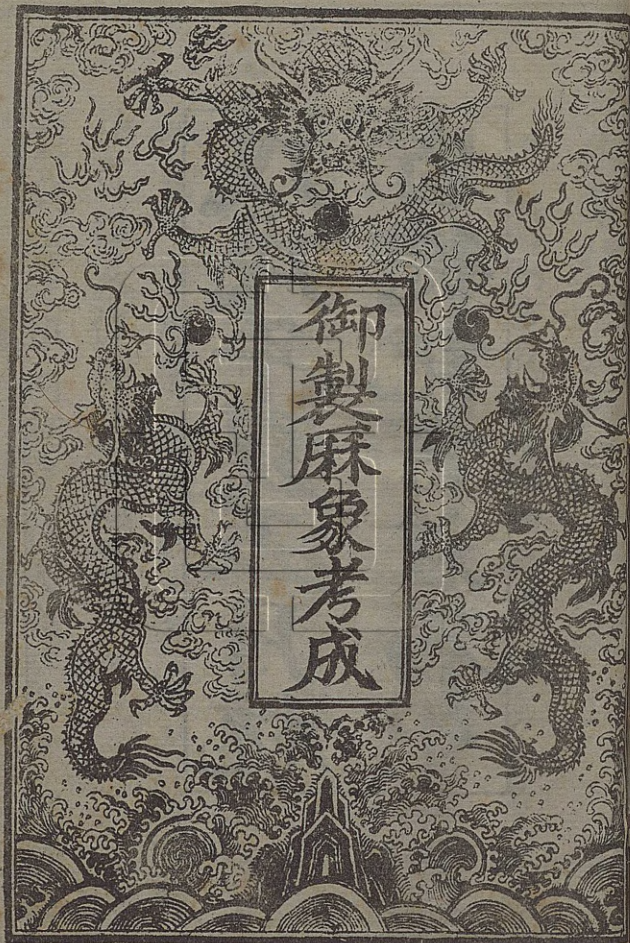 御製厤象考成